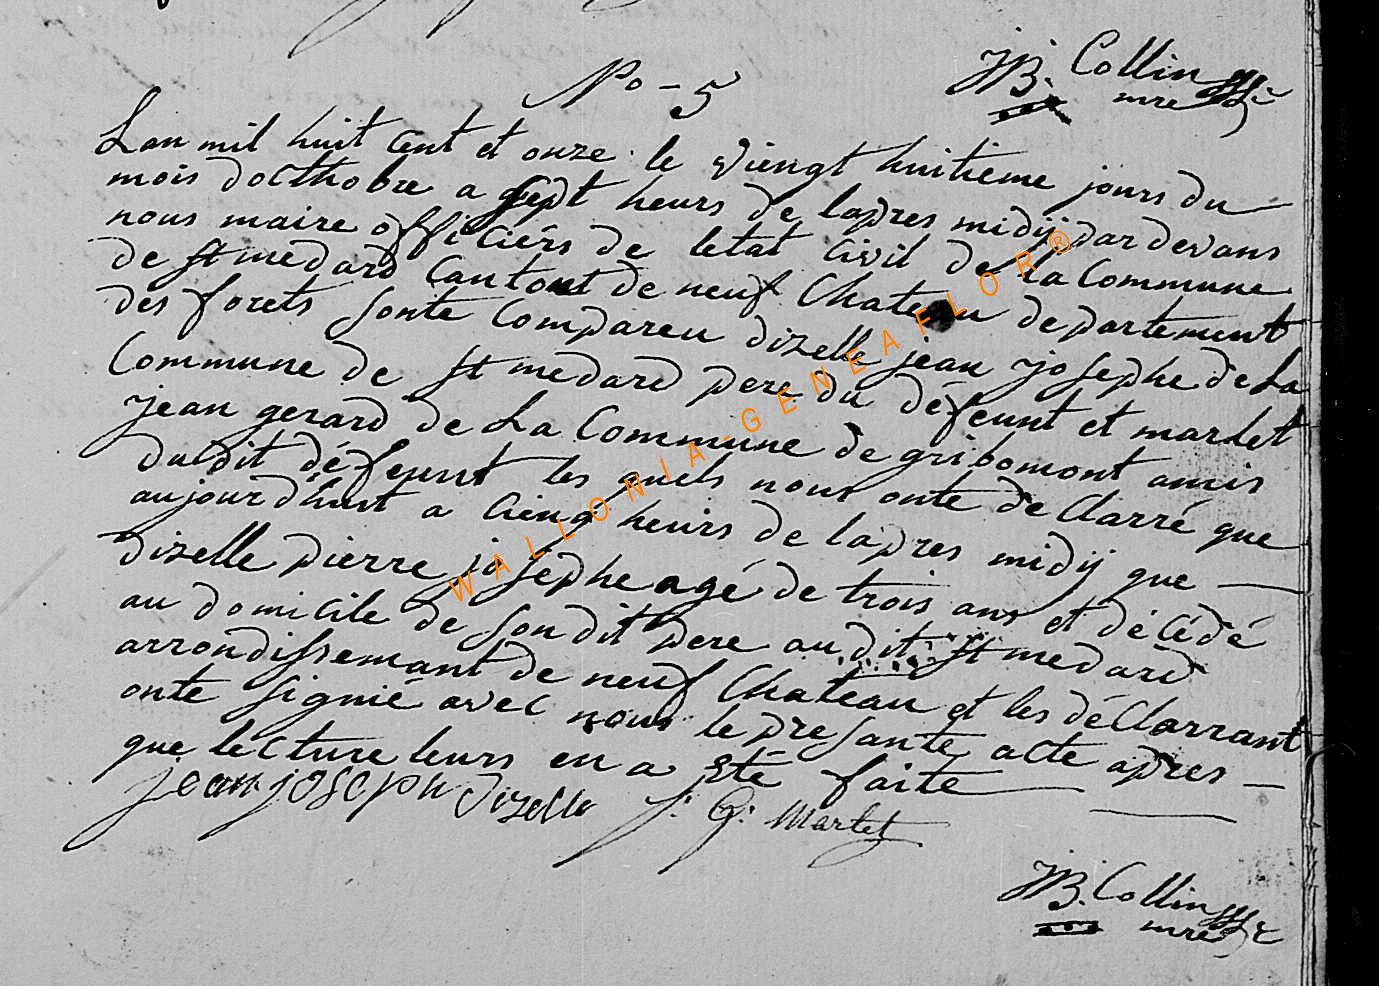 JB. Collin
mre
No - 5
Lan mil huit cent et onze le viengt huitieme jours du
mois docthobre a sept heurs de lapres midÿ par devans
nous maire officiérs de letat civil de la Commune
de st medard Cantont de neuf Chateau departement
des forets sonte Compareu dizelle jean josephe de La
Commune de st medard pere du défeunt et marlet
jean gerard de La Commune de gribomont amis
dudit défeunt les quels nous onte de Clarré que
aujourdhuit a cienq heurs de lapres midÿ que
dizelle pierre josephe agé de trois ans et décédé
au domicile de son dit pere audit st medard
arrondissemant de neuf Chateau et les déClarrant
onte signié avec nous le presante acte apres
que lecture leurs en a eté faite
jean joseph dizelle J: G: Marlet
JB. Collin
mre
WALLONIA-GENEAFLOR®